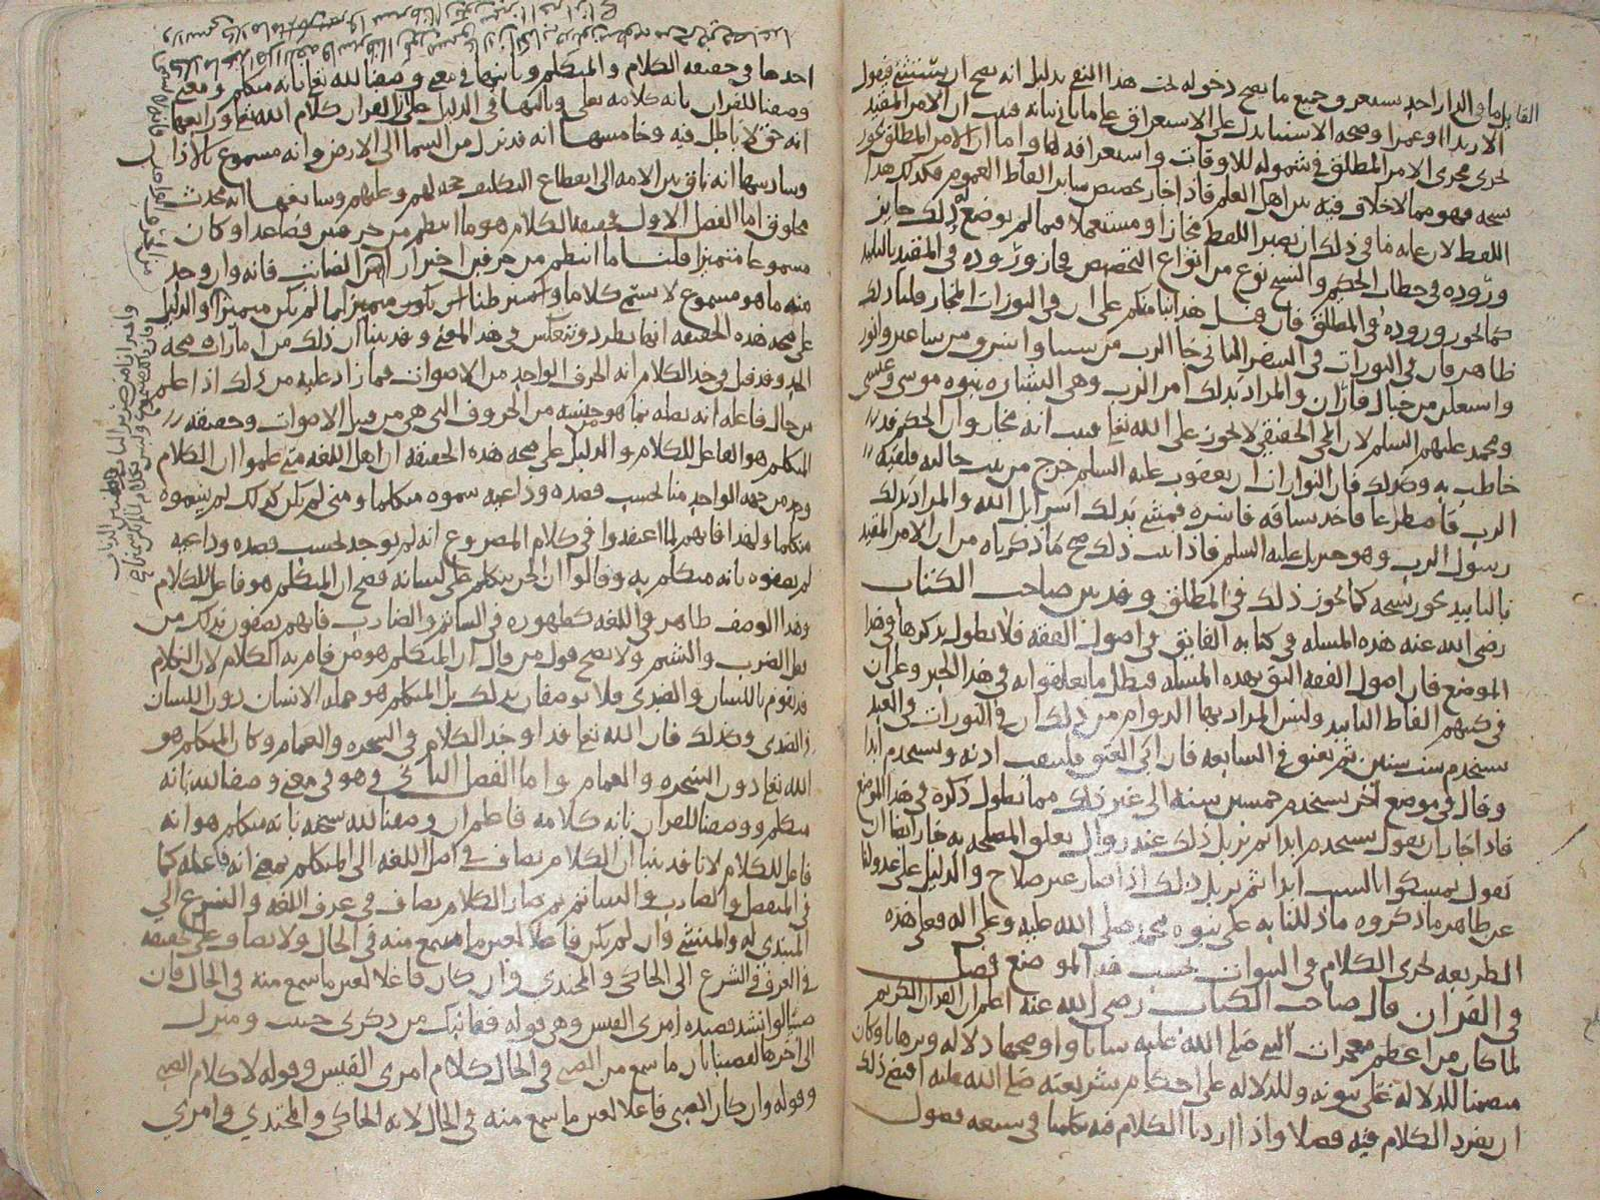 القائل ما في الدار احد يستغرق جميع ما يصح دخوله تحت هذا النفي بدليل انه يصح ان يستثني فيقول
الا زيدا او عمرا وصحة الاستثنا يدل على الاستغراق على ما ياتي بيانه فثبت ان الامر المقيد
يجري مجرى الامر المطلق في شموله للاوقات واستغراقه لها واما ان الامر المطلق يجوز
نسخه فهو مما لا خلاف فيه بين اهل العلم فاذا جاز تخصيص ساير الفاظ العموم فكذلك هذا
اللفظ لان غاية ما في ذلك ان يصير اللفظ مجازا ومستعملا فيما لم يوضع له وذلك جايز
وروده في خطاب الحكيم والنسخ نوع من انواع التخصيص فجاز وروده في المقيد بالتابيد
كما يجوز وروده في المطلق فان قيل هذا بنا منكم على ان في التورات المجاز قلنا ذلك
ظاهر فان في التورات في السفر الثاني جا الرب من سينا واشرق من ساعير وانور
واستعلن من جبال فاران والمراد بذلك امر الرب وهي البشارة بنبوة موسى وعيسى
ومحمد عليهم السلم لان المجي الحقيقي لا يجوز على الله تعالى فثبت انه مجاز وان الحكيم قد
خاطب به وكذلك فان في التوراة ان يعقوب عليه السلم خرج من بيت خاليه فلقيه
الرب فاصطرعا فاخذ بساقه فاشره فسمي بذلك اسرايل الله والمراد بذلك
رسول الرب وهو جبريل عليه السلم فاذا ثبت ذلك صح ما ذكرناه من ان الامر المقيد
بالتابيد يجوز نسخه كما يجوز ذلك في المطلق وقد بين صاحب الكتاب
رضي الله عنه هذه المسله في كتابه الفايق في اصول الفقه فلا نطول بذكرها في هذا
الموضع فان اصول الفقه اليق بهذه المسله فبطل ما تعلقوا به في هذا الخبر وعلى ان
في كتبهم الفاظ التابيد وليس المراد بها الدوام من ذلك ان في التورات في العبد
يستخدم ست سنين ثم يعتق في السابعة فان ابى العتق فليثقب اذنه ويستخدم ابدا
وقال في موضع اخر يستخدم خمسين سنة الى غير ذلك مما يطول ذكره في هذا الموضع
فاذا جاز ان يقول يستخدم ابدا ثم يزيل ذلك عند زوال تعلق المصلحة به جاز ايضا ان
يقول تمسكوا بالسبت ابدا ثم يزيل ذلك اذا صار غير صلاح والدليل على عدولنا
عن ظاهر ما ذكروه ما دللنا به على نبوة محمد صلى الله عليه وعلى اله فعلى هذه
الطريقة يجري الكلام في النبوات بحسب هذا الموضع فصل
في القران قال صاحب الكتاب رضي الله عنه اعلم ان القران الكريم
لما كان من اعظم معجزات النبي صلى الله عليه شانا واوضحها دلالة وبرهانا وكان
متضمنا للدلالة على نبوته وللدلالة على احكام شريعته صلى الله عليه اقتضى ذلك
ان نفرد الكلام فيه فصلا واذا اردنا الكلام فيه تكلمنا في سبعة فصول
احدها في حقيقة الكلام والمتكلم وثانيها في معنى وصفنا لله تعالى بانه متكلم ومعنى
وصفنا للقران بانه كلامه تعالى وثالثها في الدليل على ان القران كلام الله تعالى ورابعها
انه حق لا باطل فيه وخامسها انه قد نزل من السما الى الارض وانه مسموع بالاذان
وسادسها انه باق بين الامه الى انقطاع التكليف حجة لهم وعليهم وسابعها انه محدث
مخلوق اما الفصل الاول فحقيقة الكلام هو ما انتظم من حرفين فصاعدا وكان
مسموعا متميزا قلنا ما انتظم من حرفين احتراز من الصايت فانه وان وجد
منه ما هو مسموع لا يسمى كلاما واشترطنا ان يكون متميزا لما لم يكن متميزا والدليل
على صحة هذه الحقيقة انها تطرد وتنعكس في هذا المعنى وقد بينا ان ذلك من امارات صحة
الحد وقد قيل في حد الكلام انه الحرف الواحد من الاصوات فما زاد عليه من ذلك اذا علم
من حال فاعله انه نطقه بما هو من جنسه من الحروف التي هي من قبيل الاصوات وحقيقة
المتكلم هو الفاعل للكلام والدليل على صحة هذه الحقيقة ان اهل اللغة متى علموا ان الكلام
وجد من جهة الواحد منا بحسب قصده وداعيه سموه متكلما ومتى لم يكن كذلك لم يسموه
متكلما ولهذا فانهم لما اعتقدوا في كلام المصروع انه لم يوجد بحسب قصده وداعيه
لم يصفوه بانه متكلم به وقالوا ان الجن يتكلم على لسانه فصح ان المتكلم هو فاعل الكلام
وهذا الوصف ظاهر في اللغة كظهوره في الشاتم والضارب فانهم يصفون بذلك من
فعل الضرب والشتم ولا يصح قول من قال ان المتكلم هو من قام به الكلام لان الكلام
قد يقوم باللسان والصدى ولا يوصفان بذلك بل المتكلم هو جملة الانسان دون اللسان
والصدى وكذلك فان الله تعالى قد اوجد الكلام في الشجرة والغمام وكان المتكلم هو
الله تعالى دون الشجرة والغمام واما الفصل الثاني وهو في معنى وصفنا لله بانه
متكلم ووصفنا للقران بانه كلامه فاعلم ان وصفنا لله سبحانه بانه متكلم هو انه
فاعل للكلام لانا قد بينا ان الكلام يضاف في اصل اللغة الى المتكلم بمعنى انه فاعله كما
في المتفضل والضارب والشاتم ثم صار الكلام يضاف في عرف اللغة والشرع الى
المبتدي له والمنشي وان لم يكن فاعلا لعين ما سمع منه في الحال ولا يضاف على الحقيقة
في العرف في الشرع الى الحاكي والمحتذي وان كان فاعلا لعين ما سمع منه في الحال فان
صبيا لو انشد قصيدة امرئ القيس وهي قوله قفا نبك من ذكرى حبيب ومنزل
الى اخرها لقضينا بان ما سمع من الصبي في الحال كلام امرئ القيس وقوله لا كلام الصبي
وقوله وان كان الصبي فاعلا لعين ما سمع منه في الحال لانه الحاكي والمحتذي وامرئ